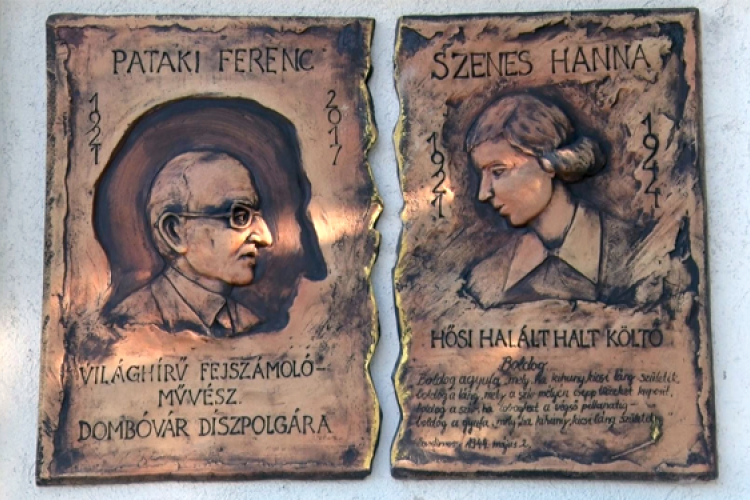 PATAKI FERENC
1921
2017
VILÁGHÍRŰ FEJSZÁMOLÓ-
MŰVÉSZ.
DOMBÓVÁR DÍSZPOLGÁRA
SZENES HANNA
1921
1944
HŐSI HALÁLT HALT KÖLTŐ
Boldog
Boldog a gyufa, mely ha kihuny, kicsi láng születik,
boldog a láng, mely a szív mélyén
boldog a szív, ha
boldog a gyufa, mely ha kihuny, kicsi láng születik
1944. május 2.